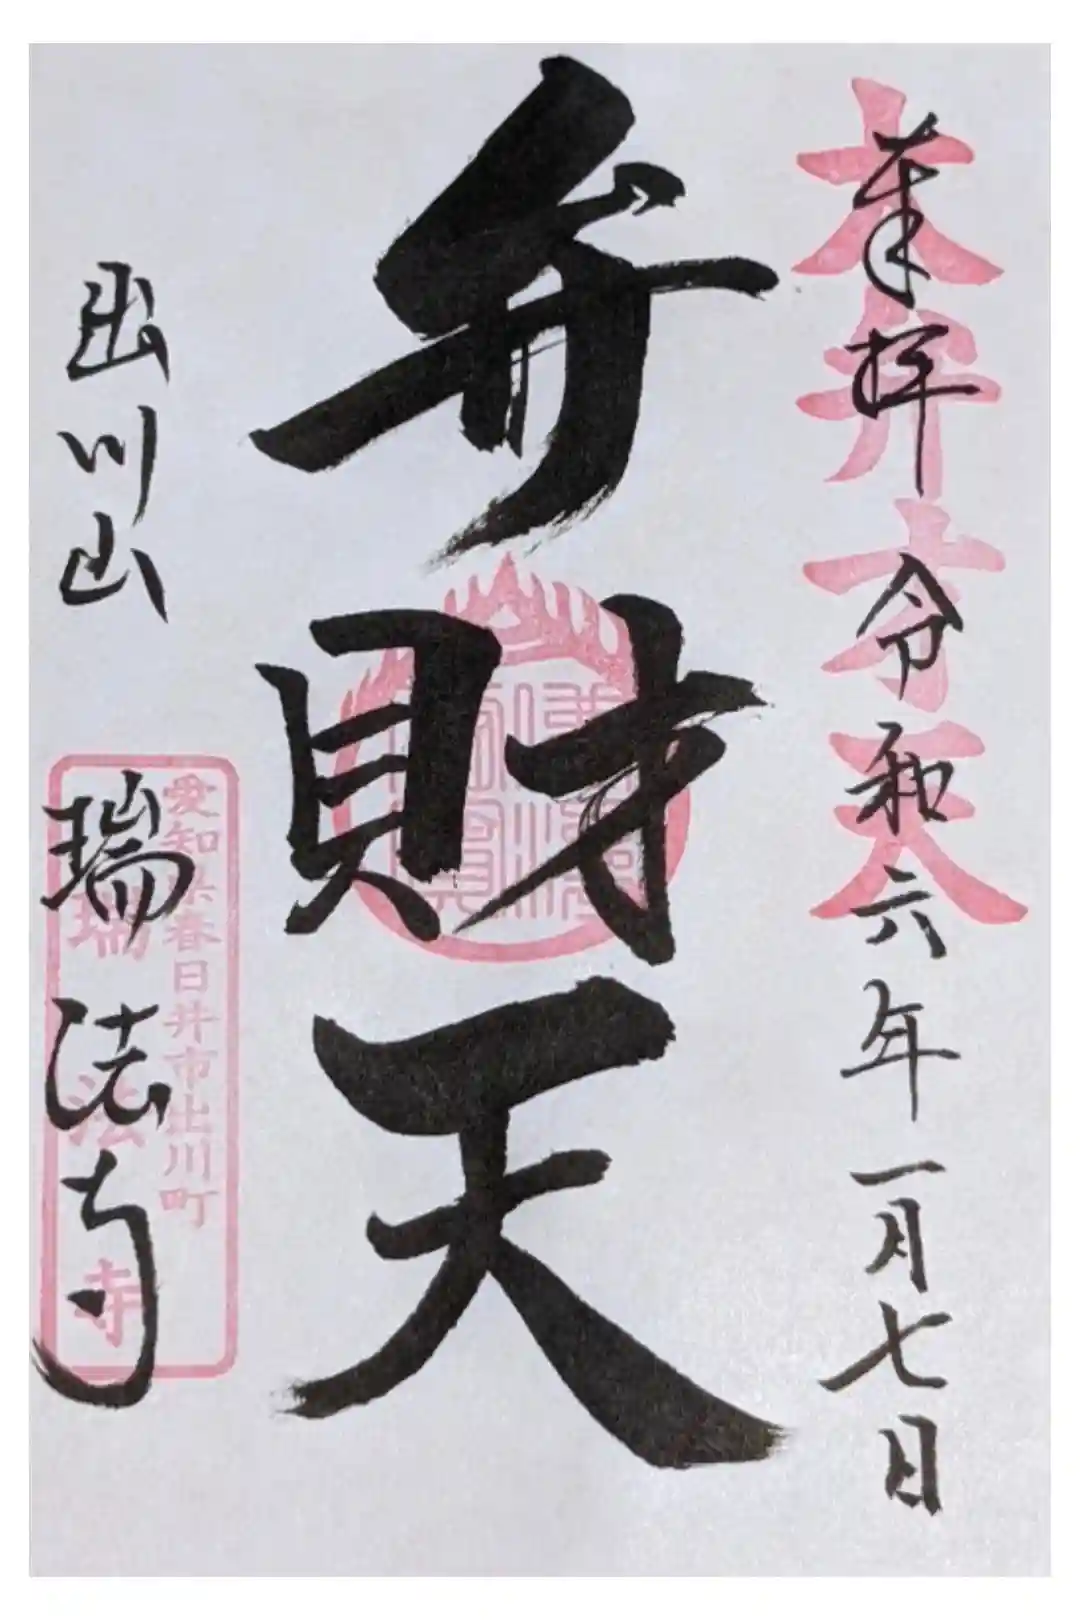 奉拝 令和六年一月七日
大弁才天
弁財天
出川山 瑞法寺
愛知県春日井市出川町
瑞法寺